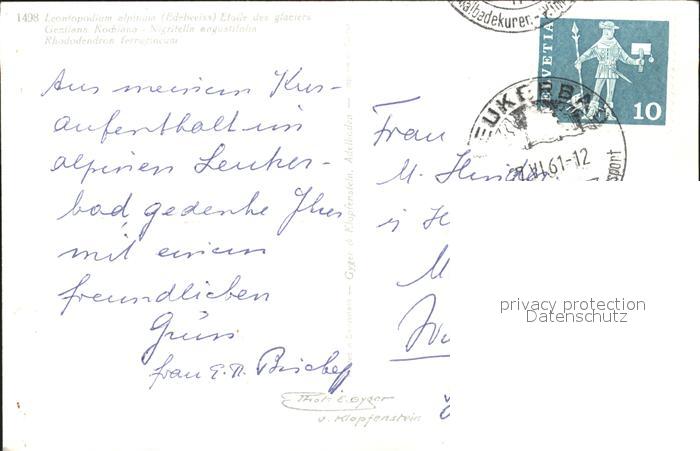 1498 Leontopodium alpinum (Edelweiss) Etoile des glaciers
Gentiana Kochiana - Nigritella angustifolia
Rhododendron ferrugineum
Aus meinem Kur-
aufenthalt im
alpinen Leuker-
bad, gedenke Ihrer
mit einem
freundlichen
Gruss
Frau E. R. Bischof
Gyger & Klopfenstein, Adelboden
Phot. E. Gyger
u. Klopfenstein
albadekuren
LEUKERBAD
VI.61-12
sport
HELVETIA
10
Frau
M.
privacy protection
Datenschutz